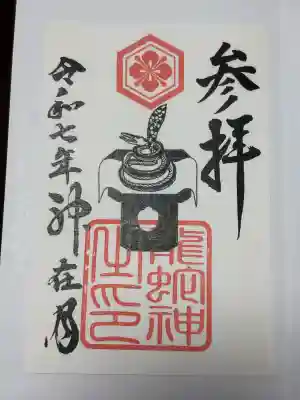 参拝
令和七年神在月
龍蛇神